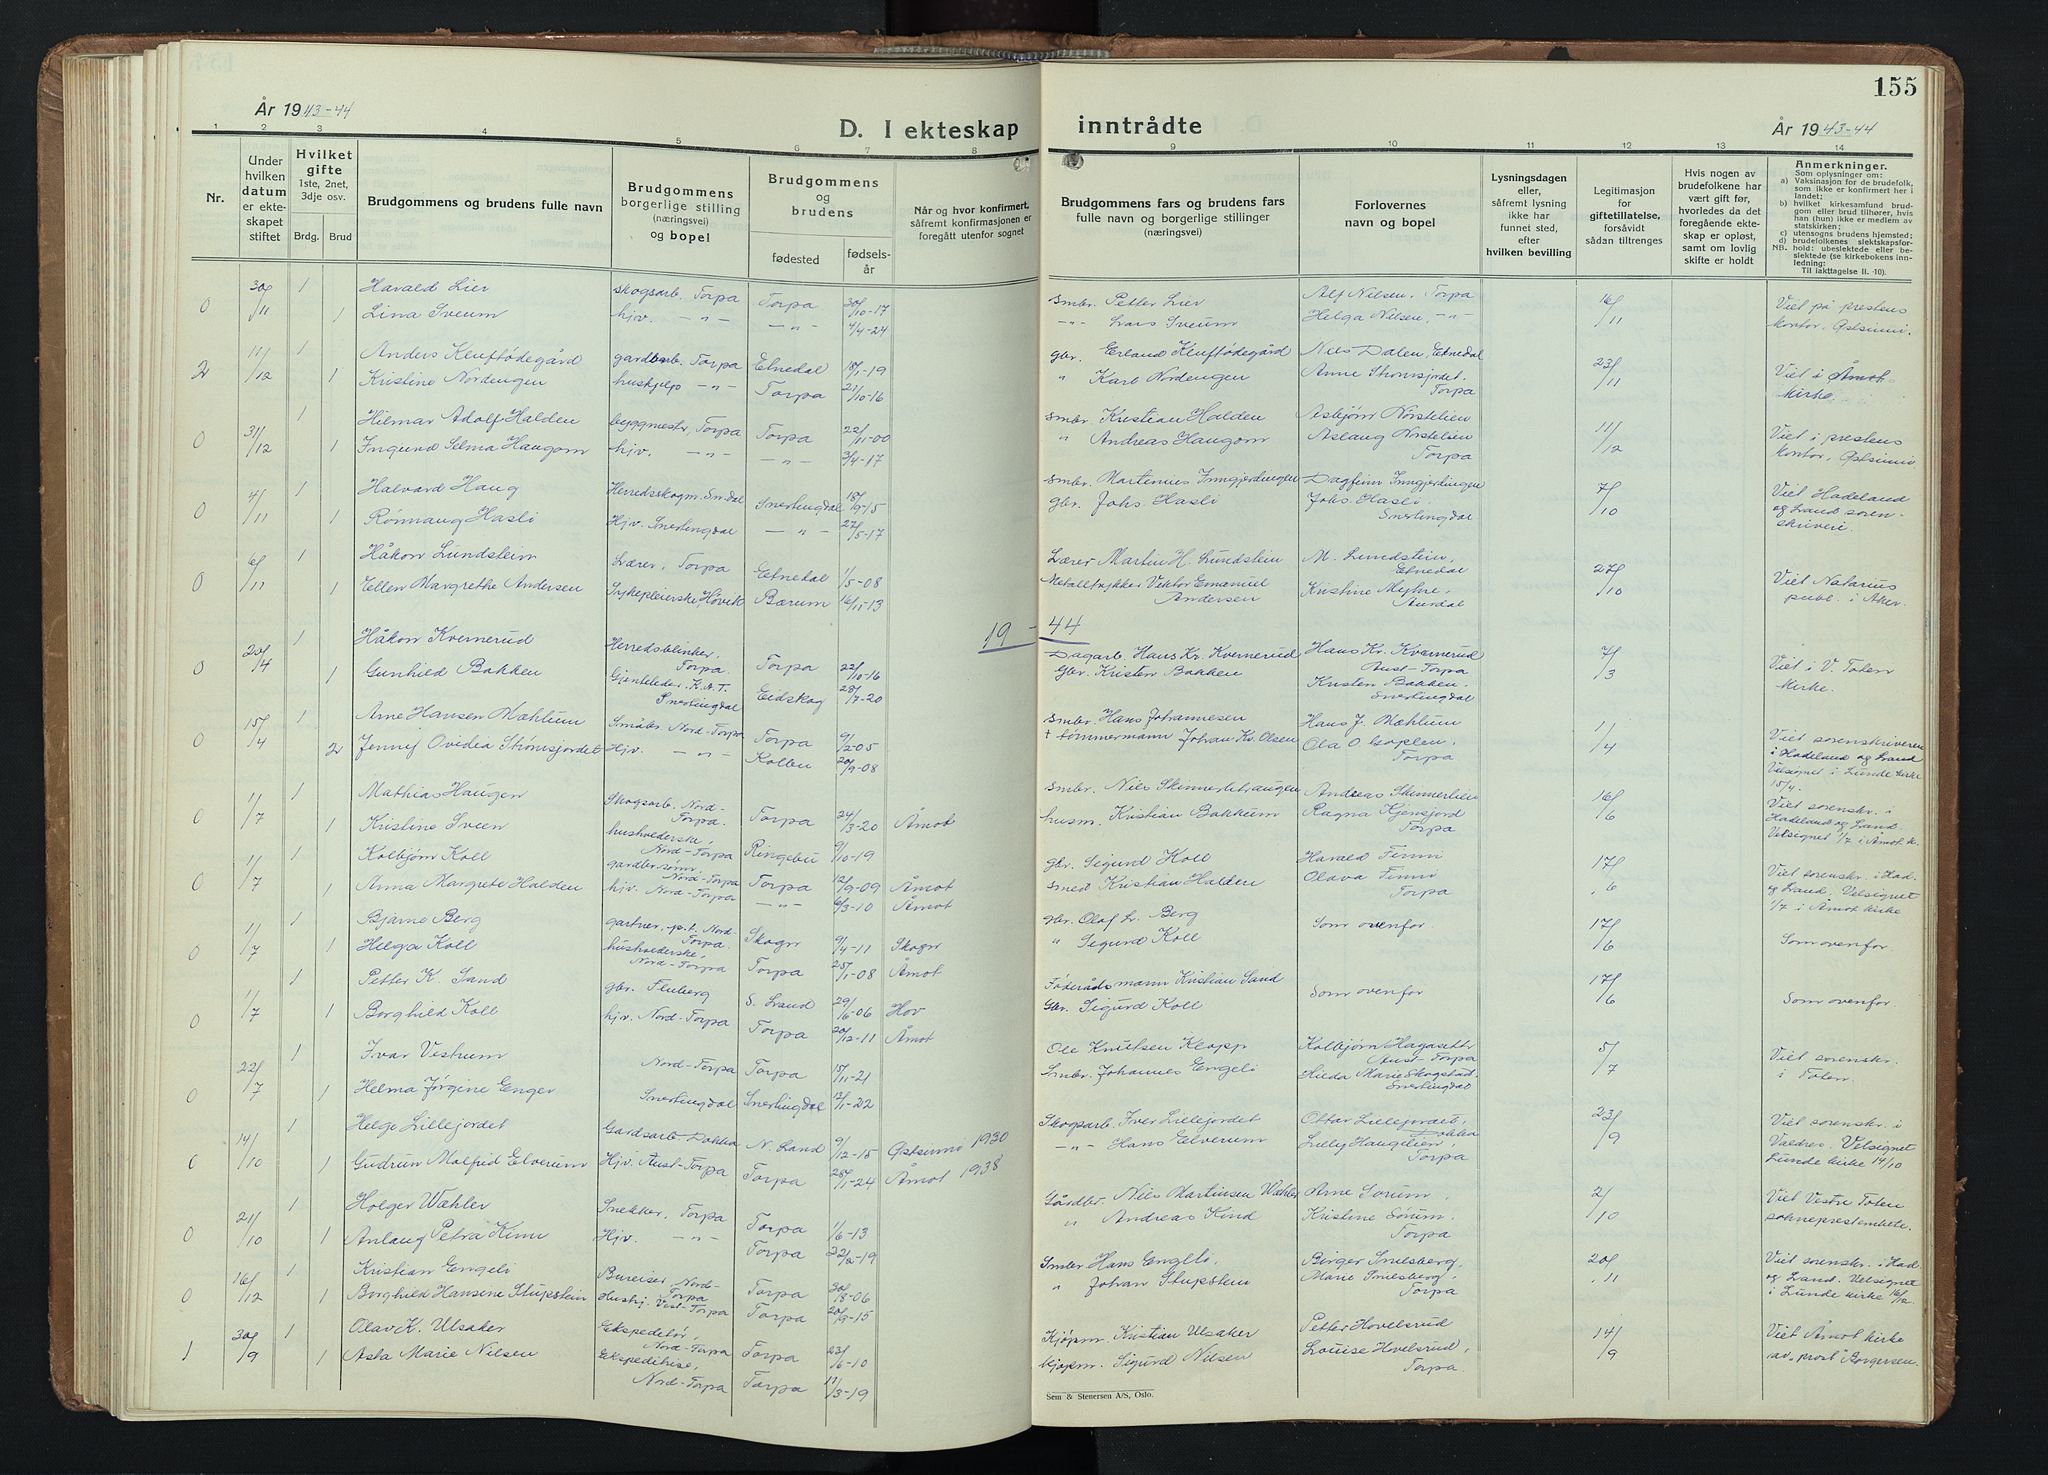 155
År 1943-44
D. I ekteskap inntrådte
År 1943-44
1 2 3 4 5 6 7 8 9 10 11 12 13 14
Nr.
Under hvilken datum er ekteskapet stiftet
Hvilket gifte 1ste, 2net, 3dje osv.
Brdg. Brud
Brudgommens og brudens fulle navn
Brudgommens borgerlige stilling (næringsvei) og bopel
Brudgommens og brudens
fødested fødselsår
Når og hvor konfirmert, såfremt konfirmasjonen er foregått utenfor sognet
Brudgommens fars og brudens fars fulle navn og borgerlige stillinger (næringsvei)
Forlovernes navn og bopel
Lysningsdagen eller, såfremt lysning ikke har funnet sted, efter hvilken bevilling
Legitimasjon for giftetillatelse, forsåvidt sådan tiltrenges
Hvis nogen av brudefolkene har vært gift før, hvorledes da det foregående ekteskap er opløst, samt om lovlig skifte er holdt
Anmerkninger.
Som oplysninger om:
a) Vaksinasjon for de brudefolk, som ikke er konfirmert her i landet;
b) hvilket kirkesamfund brudgom eller brud tilhører, hvis han (hun) ikke er medlem av statskirken;
c) utensogns brudens hjemsted;
d) brudefolkenes slektskapsforhold: ubeslektede eller beslektede (se kirkebokens innledning:
NB. Til iakttagelse II. -10).
0 30/11 1 Harald Lier skogsarb. Torpa Torpa 30/10-17 smbr. Petter Lier Alf Nilsen, Torpa 16/11 Viet på prestens
1 Lina Sveum hjv. -"- -"- 4/4-24 -"- Lars Sveum Helga Nilsen, -"- kontor, Østsinni.
2 11/12 1 Anders Kluftødegård gardbarb. Torpa Etnedal 18/1-19 gbr. Erland Kluftødegård Nils Dalen, Etnedal 23/11 Viet i Åmot
1 Kristine Nordengen hushjelp -"- Torpa 21/10-16 " Karl Nordengen Anne Strømsjordet, Torpa kirke.
0 31/12 1 Hilmar Adolf Halden byggmester, Torpa Torpa 22/11-00 smbr. Kristian Halden Asbjørn Nørstelien 11/12 Viet i prestens
1 Ingund Selma Haugom hjv. -"- -"- 3/4-17 " Andreas Haugom Aslaug Nørstelien Torpa kontor, Østsinni
0 4/11 1 Halvard Haug Herredsskogm. Sn.dal Snertingdal 18/9-15 smbr. Martenius Inngjerdingen Dagfinn Inngjerdingen 7/10 Viet Hadeland
1 Rønnaug Hasli Hjv. Snertingdal -"- 27/5-17 gbr. Johs Hasli Johs Hasli Snertingdal og Land sorenskriveri.
0 6/11 1 Håkon Lundstein Lærer, Torpa Etnedal 1/5-08 Lærer Martin H. Lundstein M. Lundstein, Etnedal 27/10 Viet Notarius
1 Ellen Margrethe Andersen Sykepleierske, Høvik Bærum 16/11-13 Metalltrykker Viktor Emanuel Andersen Kristine Myhre, Aurdal publ. i Aker.
19-44
0 20/4 1 Håkon Kvernerud Herredsblinker, Torpa Torpa 22/10-16 Dagarb. Hans Kr. Kvernerud Hans Kr. Kvernerud Aust-Torpa 7/3 Viet i V. Toten
1 Gunhild Bakken Gjenteleder K.N.T. Snertingdal Eidskog 28/7-20 Gbr. Kristen Bakken Kristen Bakken Snertingdal kirke.
0 15/4 1 Arne Hansen Mæhlum Småbr. Nord-Torpa Torpa 9/2-05 smbr. Hans Johannesen Hans J. Mæhlum 1/4 Viet sorenskriveren
2 Jenny Ovidia Strømsjordet Hjv. -"- Kolbu 20/9-08 + tømmermann Johan Kr. Olsen Ola O. Goplen, Torpa i Hadeland og Land Velsignet i Lunde kirke 15/4.
0 1/7 1 Mathias Haugen Skogsarb. Nord-Torpa. Torpa 24/3-20 Åmot smbr. Nils Skinnerlihaugen Andreas Skinnerlien 16/6 Viet sorenskr. i
1 Kristine Sveen husholderske, Nord-Torpa Ringebu 9/10-19 husm. Kristian Bakkum Ragna Kjensjord Torpa Hadeland og Land. Velsignet 1/7 i Åmot k.
0 1/7 1 Kolbjørn Koll gardbr.sønn Nord-Torpa Torpa 12/9-09 Åmot gbr. Sigurd Koll Harald Finni 17/6 Viet sorenskr. i Had.
1 Anna Margrete Halden hjv. Nord-Torpa -"- 6/3-10 Åmot smed Kristian Halden Olava Finni Torpa og Land. Velsignet 1/7 i Åmot kirke
0 1/7 1 Bjarne Berg gartner, p.t. Nord-Torpa. Skoger 9/4-11 Skoger gbr. Olaf L. Berg Som ovenfor 17/6 Som ovenfor
1 Helga Koll husholderske, Nord-Torpa Torpa 25/1-08 Åmot " Sigurd Koll
0 1/7 1 Petter K. Sand gbr. Fluberg S. Land 29/6-06 Hov Føderådsmann Kristian Sand Som ovenfor 17/6 Som ovenfor.
1 Borghild Koll hjv. Nord-Torpa Torpa 20/12-11 Åmot Gbr. Sigurd Koll
0 22/7 1 Ivar Vestrum Nord-Torpa Torpa 15/11-21 Ole Knutsen Klopp Kolbjørn Hagasetter Aust-Torpa 5/7 Viet sorenskr.
1 Helma Jørgine Enger Snertingdal Snertingdal 17/1-22 Smbr. Johannes Engeli Hilda Marie Skogstad Snertingdal i Toten.
0 14/10 1 Helge Lillejordet Gardsarb. Dokka N. Land 9/12-15 Østsinni 1930 Skogsarb. Iver Lillejordet Ottar Lillejordet, Dokka 23/9 Viet sorenskr. i
1 Gudrun Malfrid Elverum Hjv. Aust-Torpa Torpa 28/1-24 Åmot 1938 -"- Hans Elverum Lilly Haugelien, Torpa Valdres. Velsignet Lunde kirke 14/10
0 21/10 1 Holger Wæhler Snekker, Torpa Torpa 1/6-13 Gårdbr. Nils Martinsen Wæhler Arne Sørum, 2/10 Viet Vestre Toten
1 Anlaug Petra Kinn Hjv. -"- Torpa 22/2-19 " Andreas Kind Kristine Sørum, Torpa sokneprestembete.
0 16/12 1 Kristian Engeli Bureiser Nord-Torpa Torpa 30/8-06 Smbr Hans Engeli, Birger Snilsberg, 20/11 Viet sorenskr. i Had.
1 Borghild Hansine Stupstein Hushj. Vest-Torpa Torpa 20/9-15 " Johan Stupstein Marie Snilsberg, Torpa og Land. Velsignet i Lunde kirke 16/12
1 30/9 1 Olav K. Ulsaker Ekspeditør, Nord-Torpa Torpa 23/6-10 Kjøpm. Kristian Ulsaker Petter Hovelsrud 14/9 Viet Åmot kirke
1 Asta Marie Nilsen Ekspeditrise, Nord-Torpa Torpa 11/3-19 kjøpm. Sigurd Nilsen Louise Hovelsrud, Torpa av "prost" Borgersen.
Sem & Stenersen A/S, Oslo.